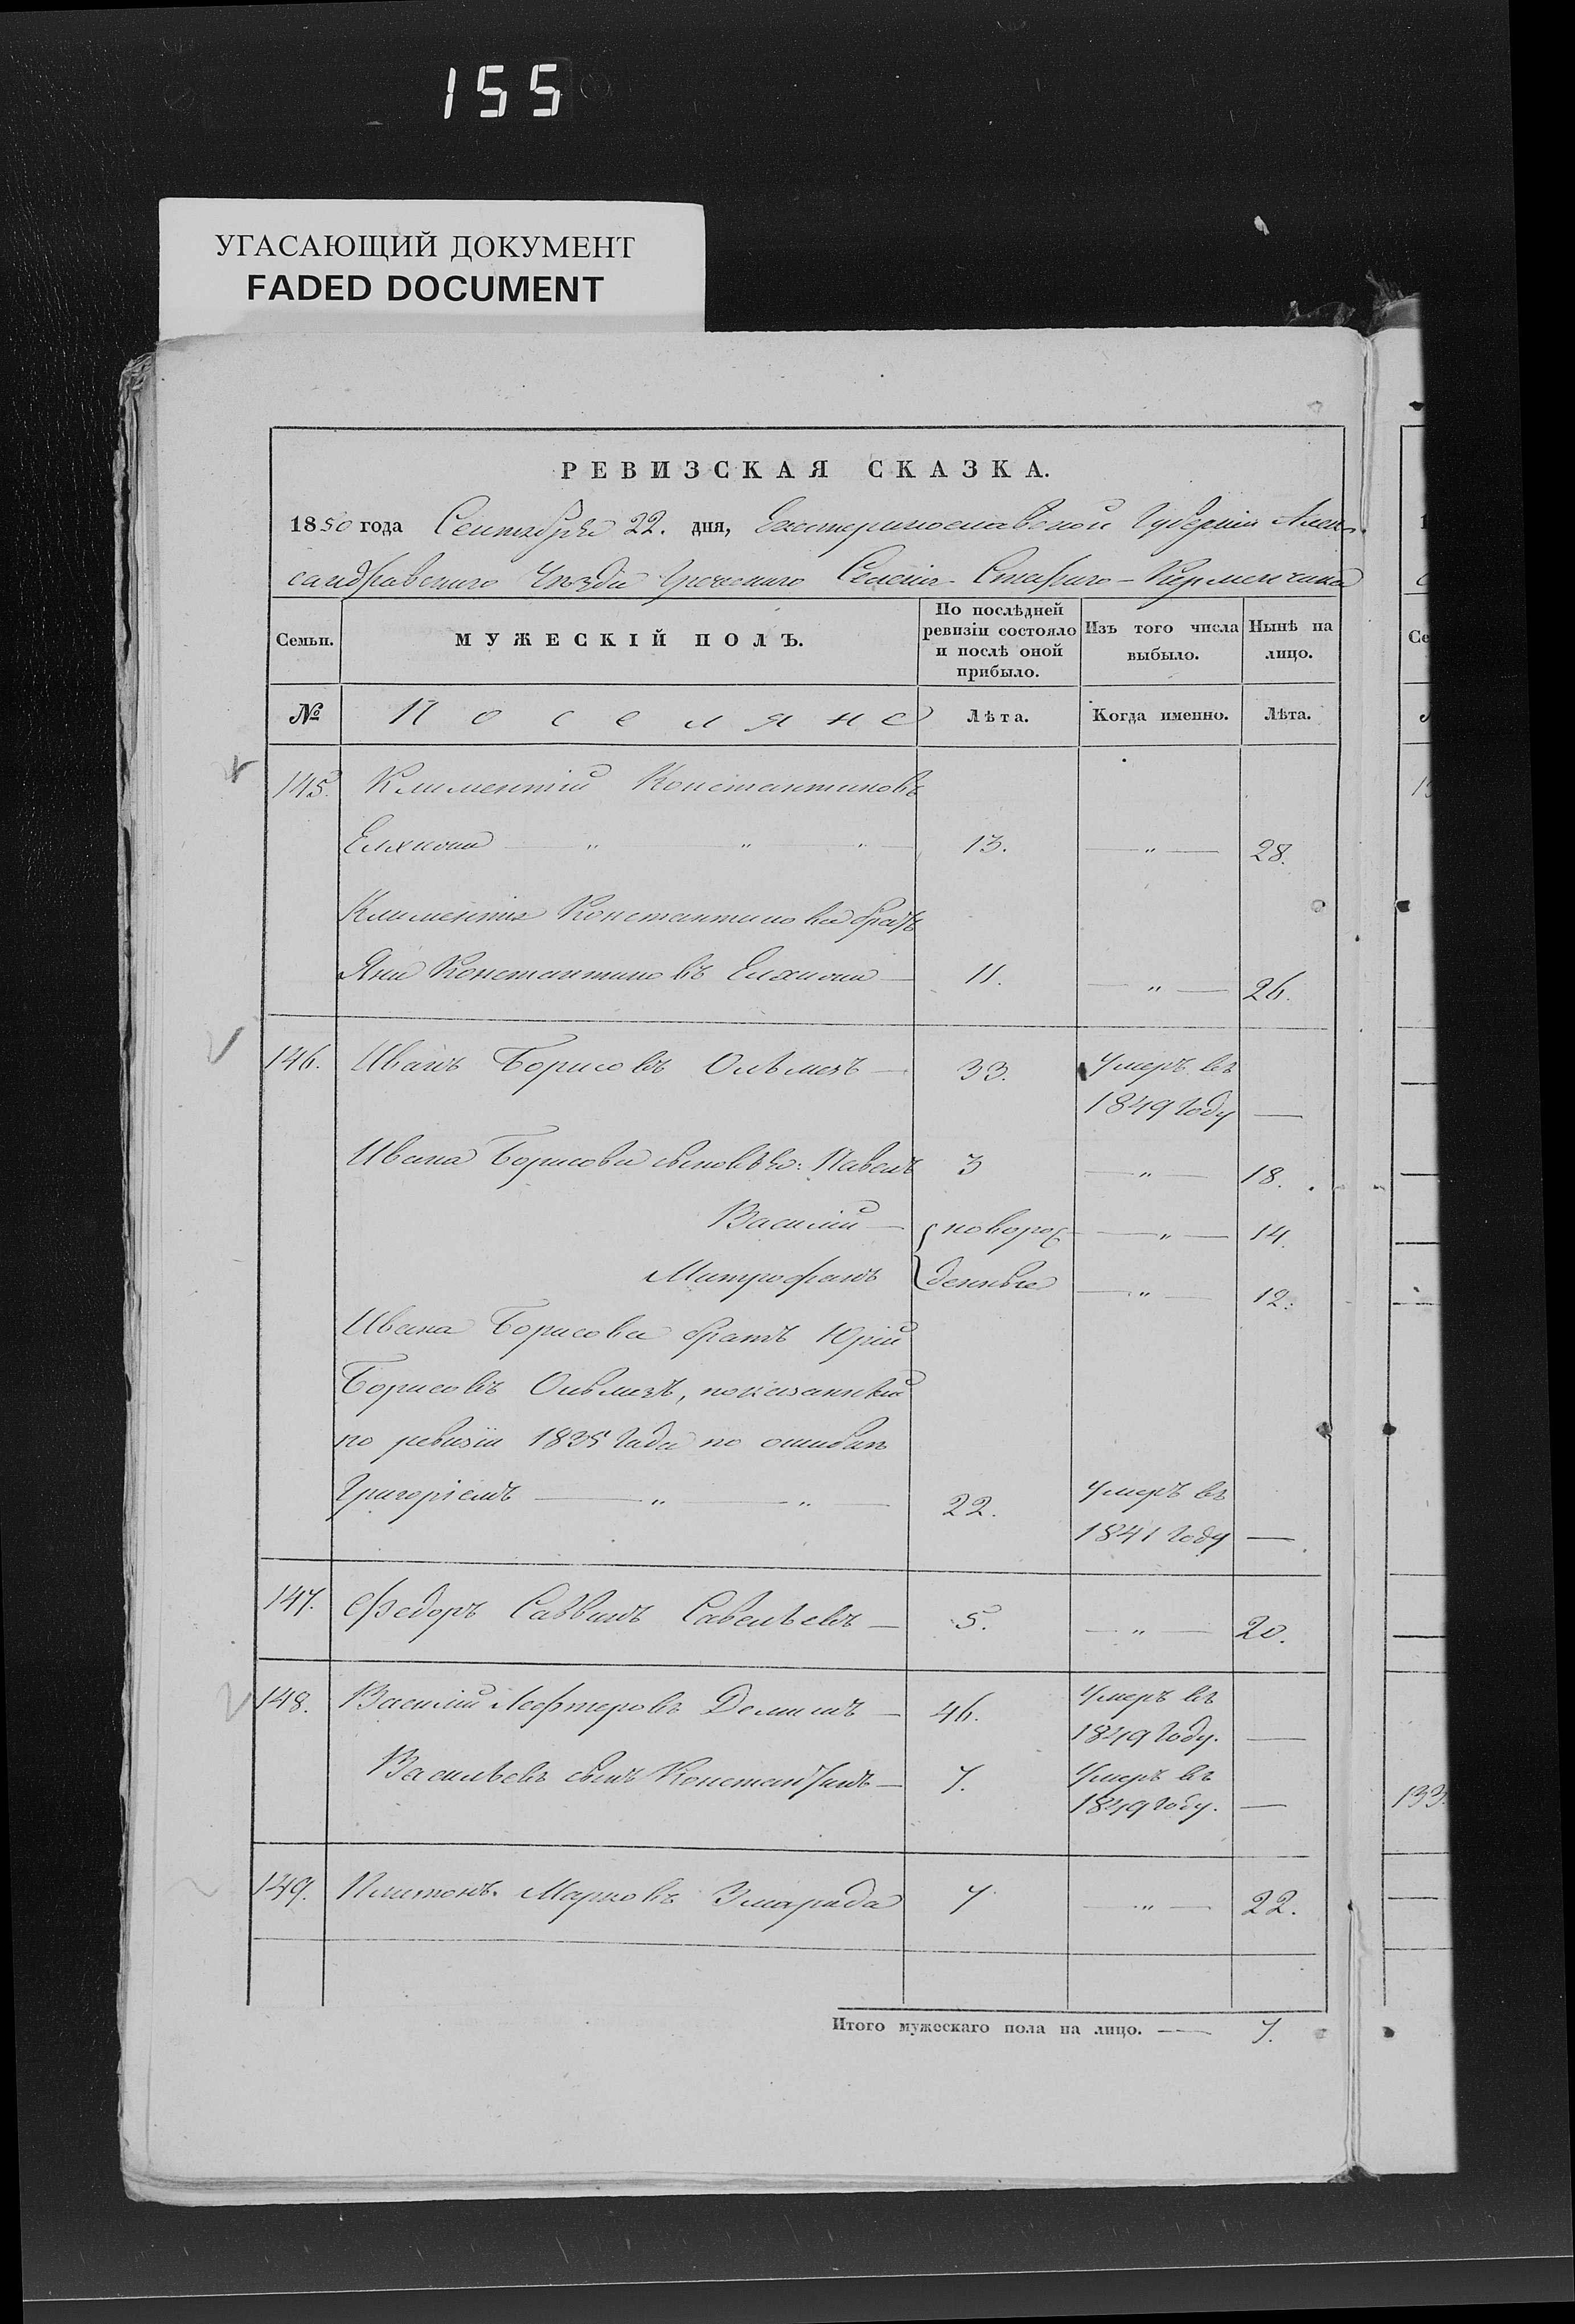 155
УГАСАЮЩИЙ ДОКУМЕНТ
FADED DOCUMENT
РЕВИЗСКАЯ СКАЗКА.
1850 года Сентября 22. дня, Екатеринославской Губерніи Алек-
сандровскаго Уѣзда Греческаго Селенія Стараго-Керменчика
Семьи. МУЖЕСКІЙ ПОЛЪ. По послѣдней ревизіи состояло и послѣ оной прибыло. Изъ того числа выбыло. Нынѣ на лицо.
№ Поселяне Лѣта. Когда именно. Лѣта.
145. Климентій Константиновъ
Елхчи — " " " 13. — " — 28.
Климентія Константинова братъ
Яни Константиновъ Елхчи — 11. — " — 26.
146. Иванъ Борисовъ Ольмезъ — 33. Умеръ въ
1849 Году —
Ивана Борисова сыновья: Павелъ 3 — " — 18.
Василій — новорож — " — 14.
Митрофанъ денные — " — 12.
Ивана Борисова братъ Юрій
Борисовъ Ольмезъ, показанный
по ревизіи 1835 Года по ошибкѣ
Григоріемъ — " — " — 22. Умеръ въ
1841 Году —
147. Федоръ Саввинъ Савельевъ — 5. — " — 20.
148. Василій Лефтеровъ — 46. Умеръ въ
1849 Году. —
Васильевъ сынъ Константинъ — 7. Умеръ въ
1849 Году. —
149. Платонъ Марковъ Змарада 7 — " — 22.
Итого мужескаго пола на лицо. — 7.
133.